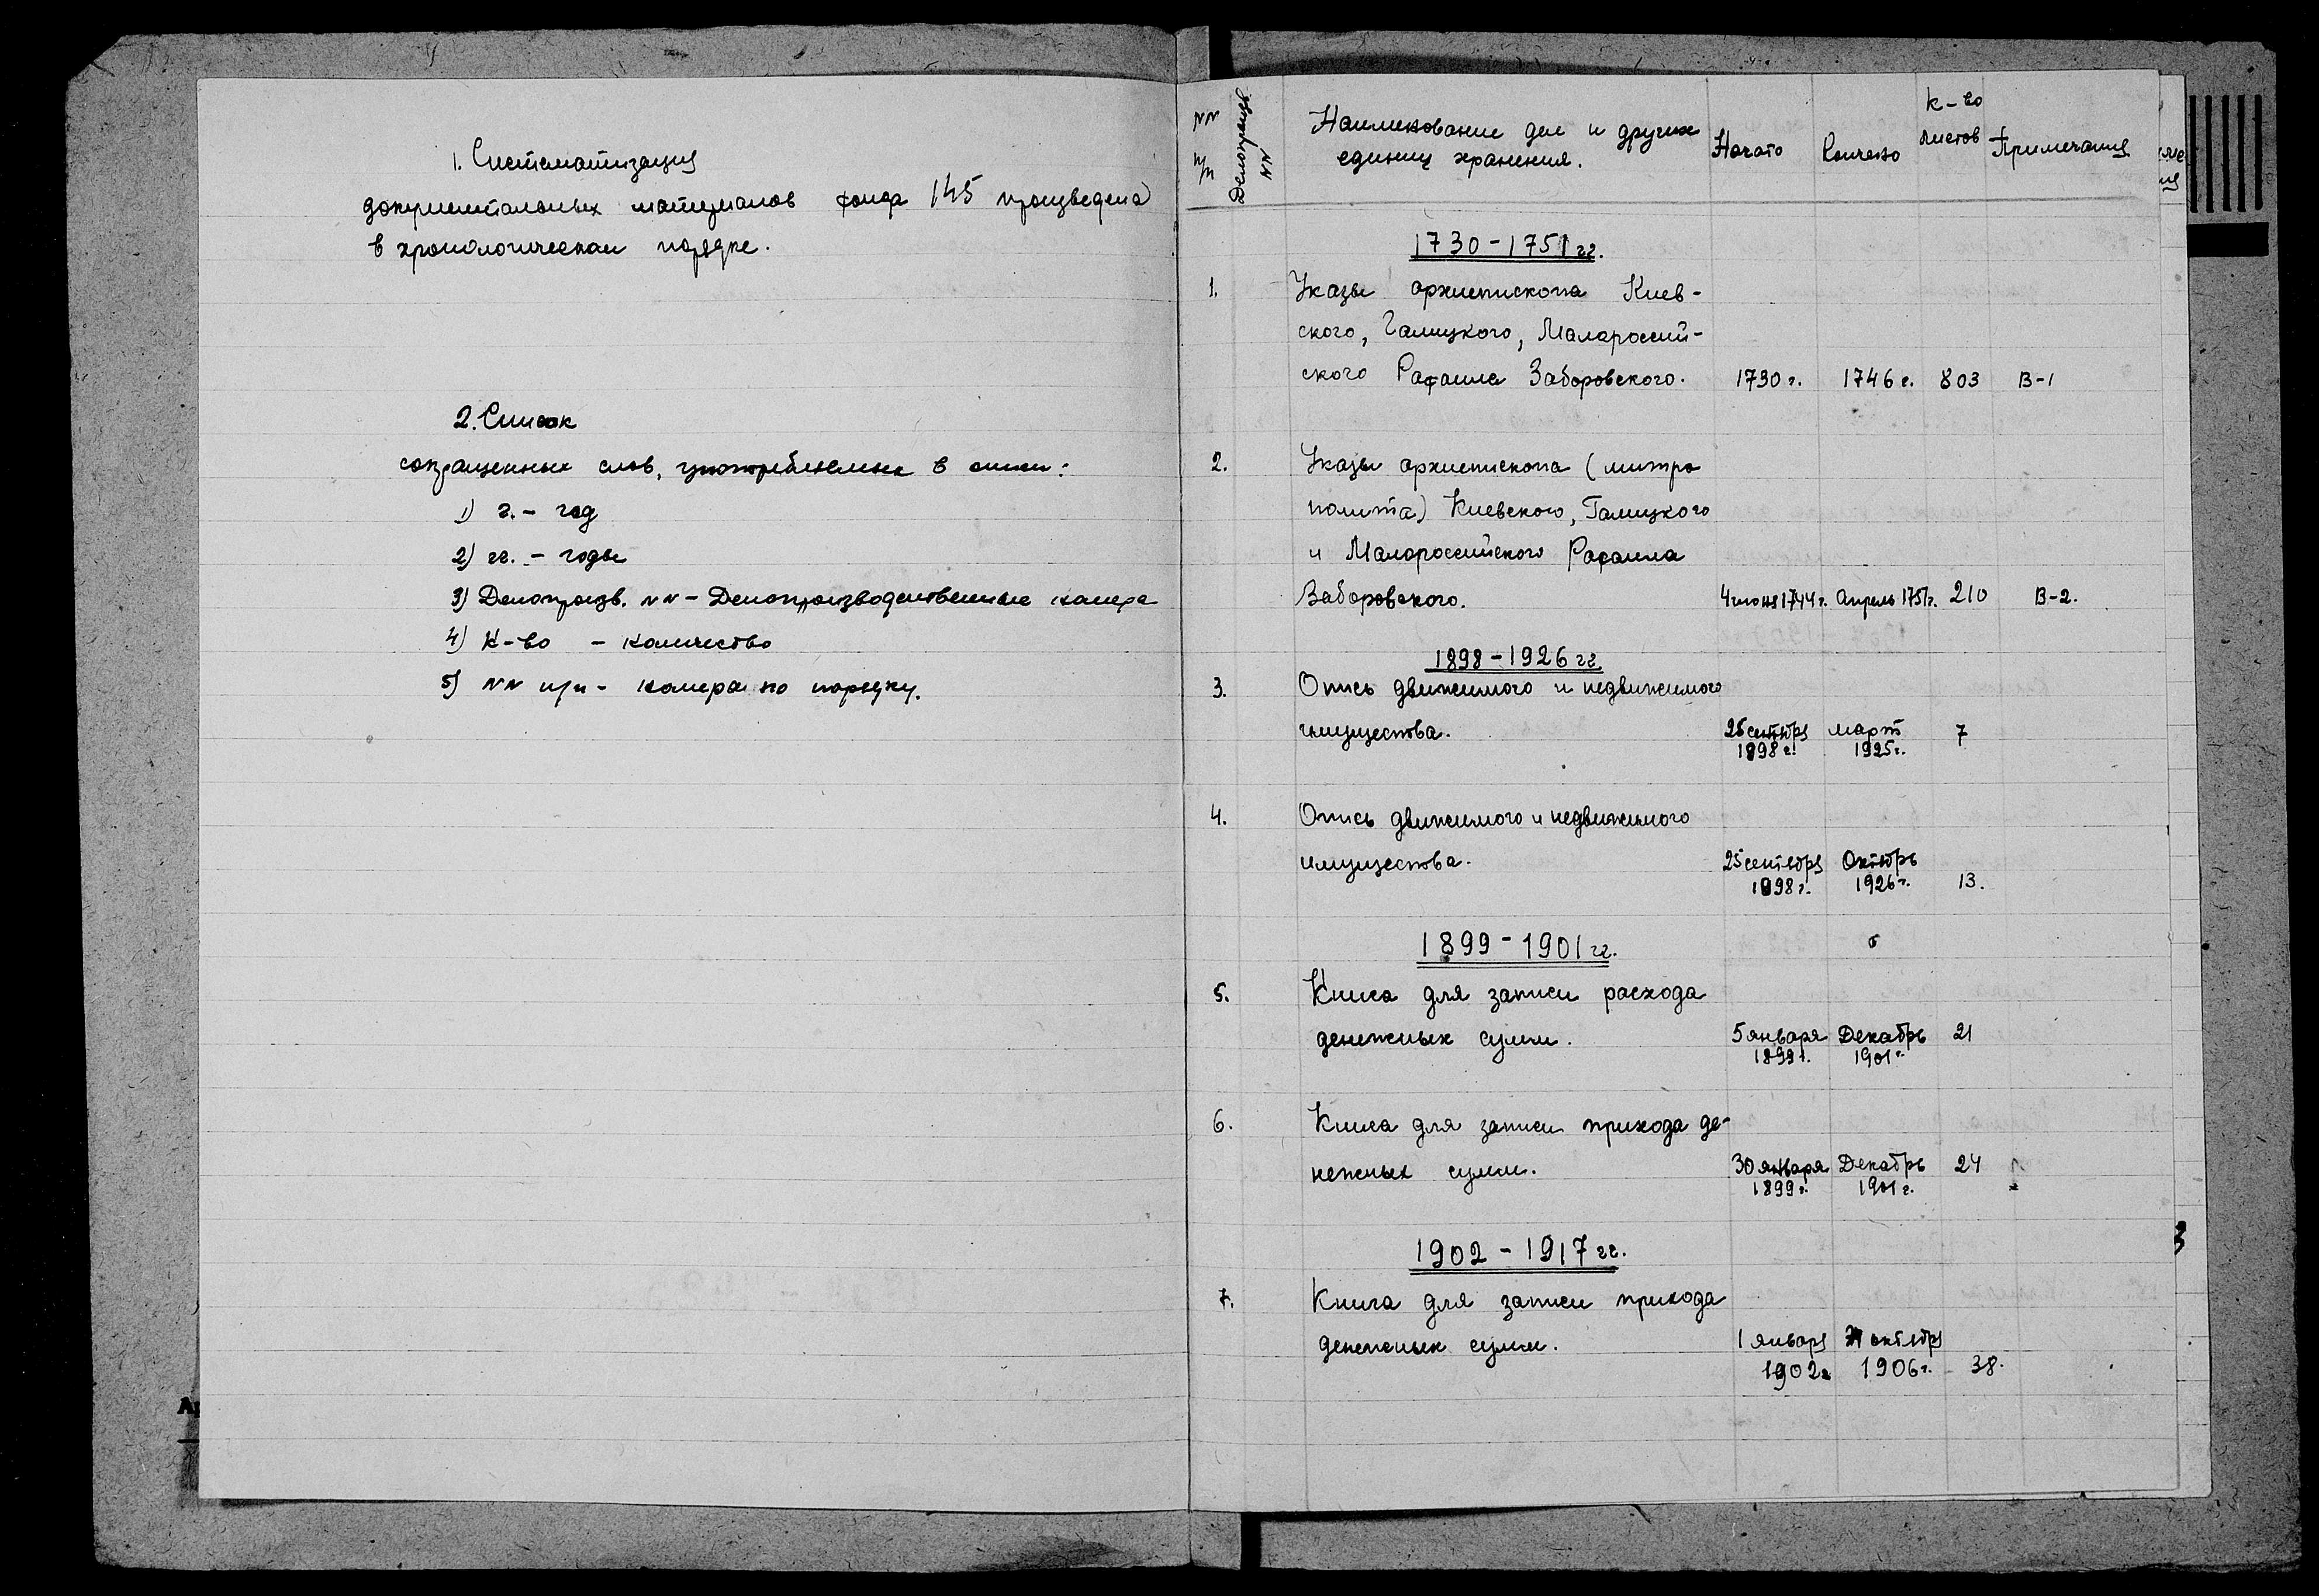 1. Систематизация
документальных материалов фонда 145 произведена
в хронологическом порядке.
2. Список
сокращенных слов, употребляемых в описи:
1) г. – год
2) гг. – годы
3) Делопроизв. NN – Делопроизводственные номера
4) К-во – количество
5) NN п/п – номера по порядку.
NN п/п
Делопроизв. NN
Наименование дел и других
единиц хранения.
Начато
Кончено
к-во
листов
Примечания
1730 – 1751 гг.
1. Указы архиепископа Киев-
ского, Галицкого, Малароссий-
ского Рафаила Заборовского. 1730 г. 1746 г. 803 В-1
2. Указы архиепископа (митро
полита) Киевского, Галицкого
и Малороссийского Рафаила
Заборовского. 4 июня 1744 г. Апрель 1751г. 210 В-2.
1898 – 1926 гг.
3. Опись движимого и недвижимого
имущества. 25 сентября март 7
1898 г. 1925г.
4. Опись движимого и недвижимого
имущества. 25 сентября Октябрь
1898 г. 1926 г. 13.
1899 – 1901 гг.
5. Книга для записи расхода
денежных сумм. 5 января Декабрь 21
1899 г. 1901 г.
6. Книга для записи прихода де-
нежных сумм. 30 января Декабрь 24
1899 г. 1901 г.
3
1902 – 1917 гг.
7. Книга для записи прихода
денежных сумм. 1 января октября
1902 г. 1906 г. 38.